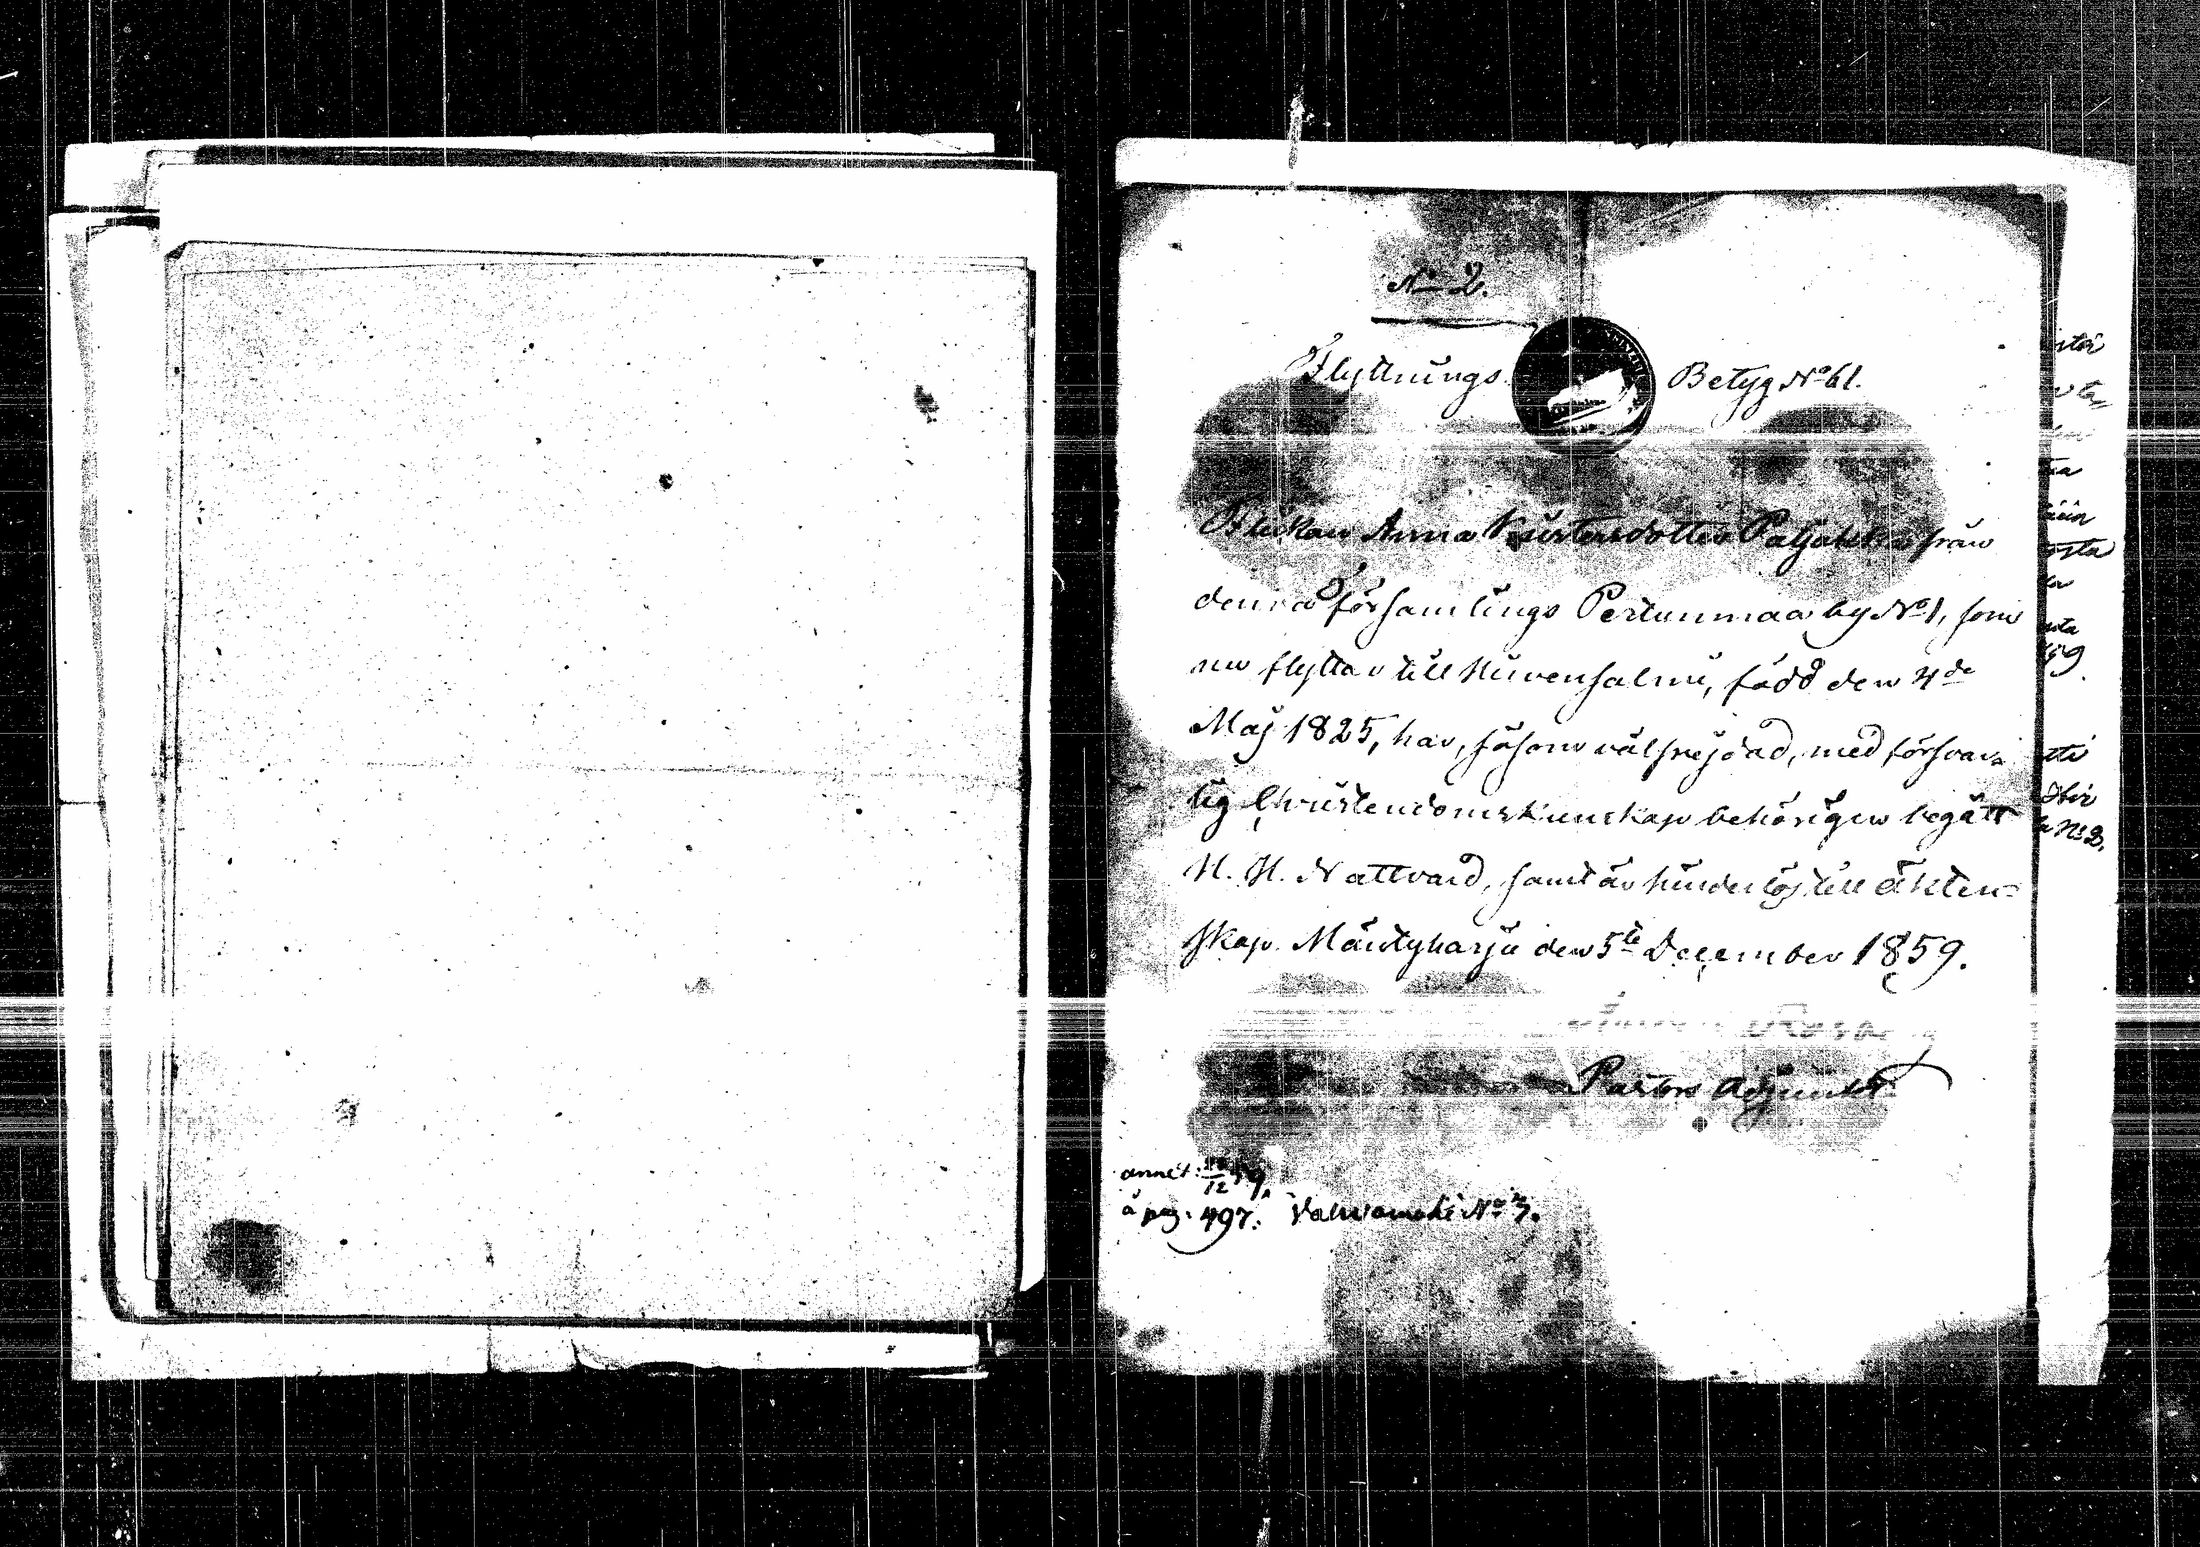 No 2.
Flyttnings Betyg No 61.
Flickan Anna Kristersdotter Paljakka från
denna församlings Pertunmaa by No 1, som
nu flyttar till Hirvensalmi, född den 4de
Maj 1825, har, såsom välfrejdad, med försvar=
lig Christendomskunskap behörigen begått
H. H. Nattvard, samt är hinderlös till äkten=
skap. Mäntyharju den 5te December 1859.
Pastors Adjunkt.
annot: 12 59.
å pag. 497. No 3.